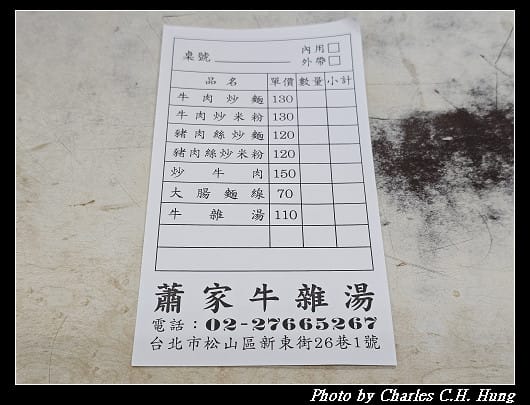 內用□
桌號＿＿＿＿＿ 外帶□
品名 單價 數量 小計
牛肉炒麵 130
牛肉炒米粉 130
豬肉絲炒麵 120
豬肉絲炒米粉 120
炒牛肉 150
大腸麵線 70
牛雜湯 110
蕭家牛雜湯
電話：02-27665267
台北市松山區新東街26巷1號
Photo by Charles C.H. Hung